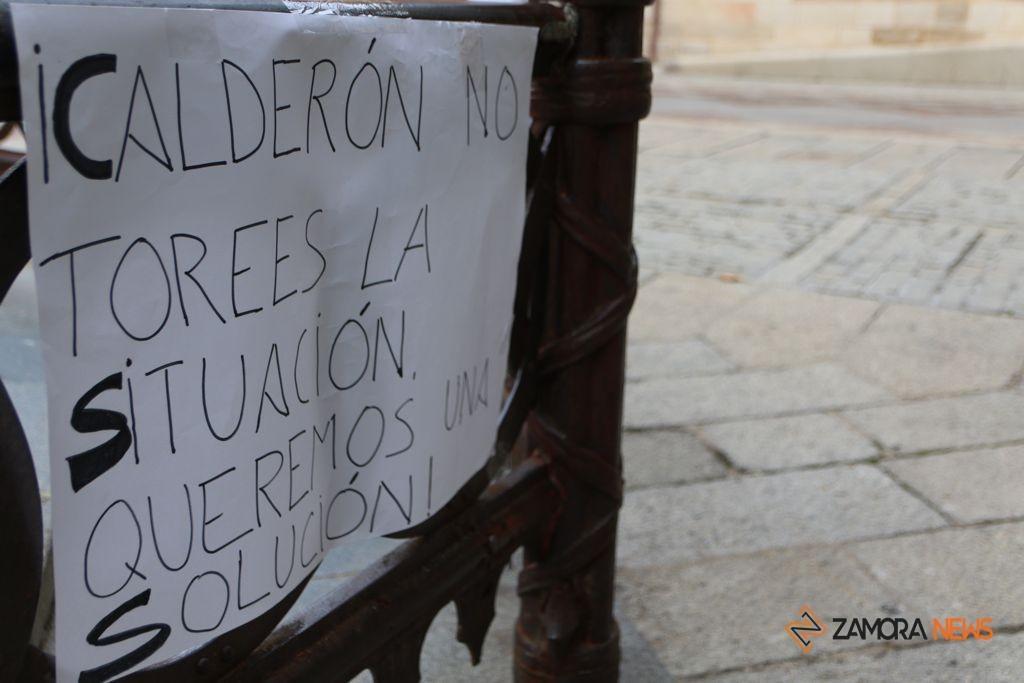 ¡CALDERÓN NO
TOREES LA
SITUACIÓN.
QUEREMOS UNA
SOLUCIÓN!
ZAMORA NEWS